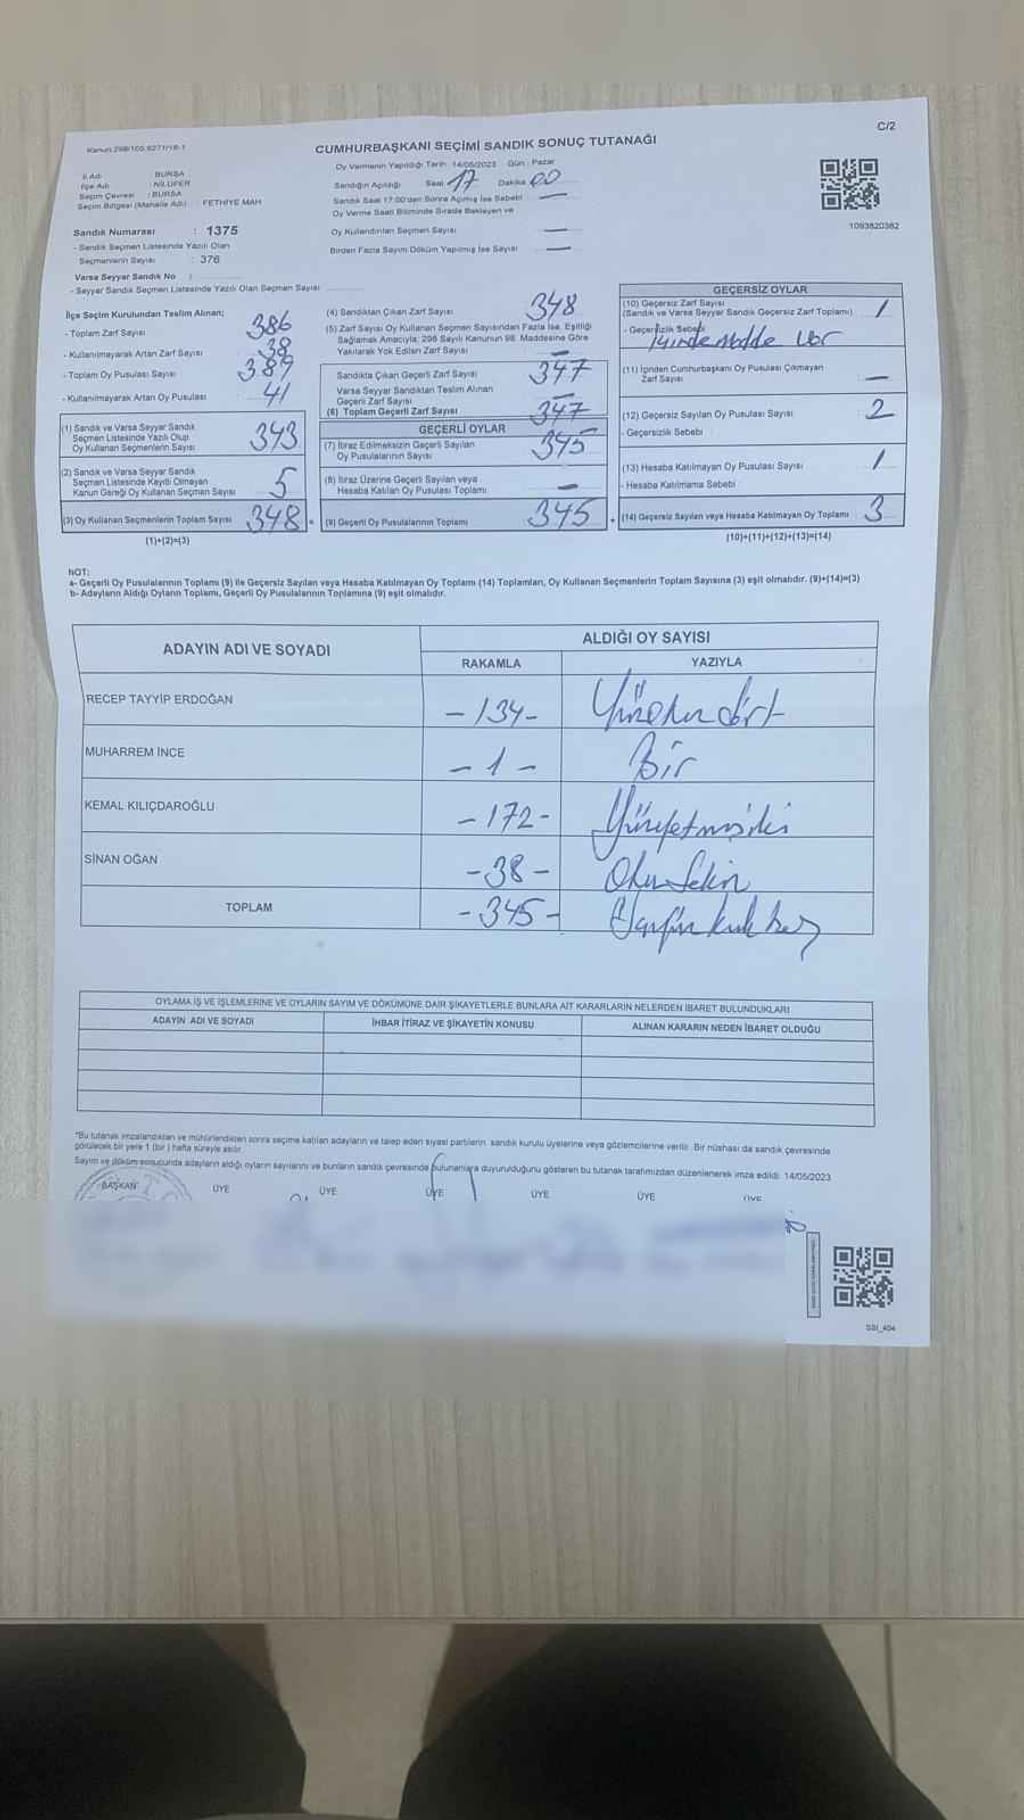 C/2
Kanun:298/105,6271/18-1
CUMHURBAŞKANI SEÇİMİ SANDIK SONUÇ TUTANAĞI
İl Adı : BURSA
İlçe Adı : NİLÜFER
Seçim Çevresi : BURSA
Seçim Bölgesi (Mahalle Adı) : FETHİYE MAH
Oy Vermenin Yapıldığı Tarih: 14/05/2023 Gün : Pazar
Sandığın Açıldığı Saat 17 Dakika 00
Sandık Saat 17:00'den Sonra Açılmış İse Sebebi —
Oy Verme Saati Bitiminde Sırada Bekleyen ve
Oy Kullandırılan Seçmen Sayısı —
Birden Fazla Sayım Döküm Yapılmış İse Sayısı —
1093820382
Sandık Numarası : 1375
- Sandık Seçmen Listesinde Yazılı Olan
Seçmenlerin Sayısı : 376
Varsa Seyyar Sandık No :
- Seyyar Sandık Seçmen Listesinde Yazılı Olan Seçmen Sayısı
İlçe Seçim Kurulundan Teslim Alınan;
- Toplam Zarf Sayısı 386
- Kullanılmayarak Artan Zarf Sayısı 38
- Toplam Oy Pusulası Sayısı 389
- Kullanılmayarak Artan Oy Pusulası 41
(1) Sandık ve Varsa Seyyar Sandık
Seçmen Listesinde Yazılı Olup
Oy Kullanan Seçmenlerin Sayısı 343
(2) Sandık ve Varsa Seyyar Sandık
Seçmen Listesinde Kaydı Olmayan
Kanun Gereği Oy Kullanan Seçmen Sayısı 5
(3) Oy Kullanan Seçmenlerin Toplam Sayısı 348 =
(1)+(2)=(3)
(4) Sandıktan Çıkan Zarf Sayısı 348
(5) Zarf Sayısı Oy Kullanan Seçmen Sayısından Fazla İse, Eşitliği
Sağlamak Amacıyla; 298 Sayılı Kanunun 98. Maddesine Göre
Yakılarak Yok Edilen Zarf Sayısı —
Sandıkta Çıkan Geçerli Zarf Sayısı 347
Varsa Seyyar Sandıktan Teslim Alınan
Geçerli Zarf Sayısı —
(6) Toplam Geçerli Zarf Sayısı 347
GEÇERLİ OYLAR
(7) İtiraz Edilmeksizin Geçerli Sayılan
Oy Pusulalarının Sayısı 345
(8) İtiraz Üzerine Geçerli Sayılan veya
Hesaba Katılan Oy Pusulası Toplamı —
(9) Geçerli Oy Pusulalarının Toplamı 345 +
GEÇERSİZ OYLAR
(10) Geçersiz Zarf Sayısı
(Sandık ve Varsa Seyyar Sandık Geçersiz Zarf Toplamı) 1
- Geçersizlik Sebebi
içinde Madde Var
(11) İçinden Cumhurbaşkanı Oy Pusulası Çıkmayan
Zarf Sayısı —
(12) Geçersiz Sayılan Oy Pusulası Sayısı 2
- Geçersizlik Sebebi
(13) Hesaba Katılmayan Oy Pusulası Sayısı 1
- Hesaba Katılmama Sebebi
(14) Geçersiz Sayılan veya Hesaba Katılmayan Oy Toplamı 3
(10)+(11)+(12)+(13)=(14)
NOT:
a- Geçerli Oy Pusulalarının Toplamı (9) ile Geçersiz Sayılan veya Hesaba Katılmayan Oy Toplamı (14) Toplamları, Oy Kullanan Seçmenlerin Toplam Sayısına (3) eşit olmalıdır. (9)+(14)=(3)
b- Adayların Aldığı Oyların Toplamı, Geçerli Oy Pusulalarının Toplamına (9) eşit olmalıdır.
ADAYIN ADI VE SOYADI
ALDIĞI OY SAYISI
RAKAMLA YAZIYLA
RECEP TAYYİP ERDOĞAN -134- Yüzotuzdört
MUHARREM İNCE -1- Bir
KEMAL KILIÇDAROĞLU -172- Yüzyetmişiki
SİNAN OĞAN -38- Otuzsekiz
TOPLAM -345- Üçyüzkırkbeş
OYLAMA İŞ VE İŞLEMLERİNE VE OYLARIN SAYIM VE DÖKÜMÜNE DAİR ŞİKAYETLERLE BUNLARA AİT KARARLARIN NELERDEN İBARET BULUNDUKLARI
ADAYIN ADI VE SOYADI İHBAR İTİRAZ VE ŞİKAYETİN KONUSU ALINAN KARARIN NEDEN İBARET OLDUĞU
*Bu tutanak imzalandıktan ve mühürlendikten sonra seçime katılan adayların ve talep eden siyasi partilerin, sandık kurulu üyelerine veya gözlemcilerine verilir. Bir nüshası da sandık çevresinde
görülecek bir yere 1 (bir) hafta süreyle asılır.
Sayım ve döküm sonucunda adayların aldığı oyların sayılarını ve bunların sandık çevresinde bulunanlara duyurulduğunu gösteren bu tutanak tarafımızdan düzenlenerek imza edildi. 14/05/2023
BAŞKAN ÜYE ÜYE ÜYE ÜYE ÜYE ÜYE
SSI_404